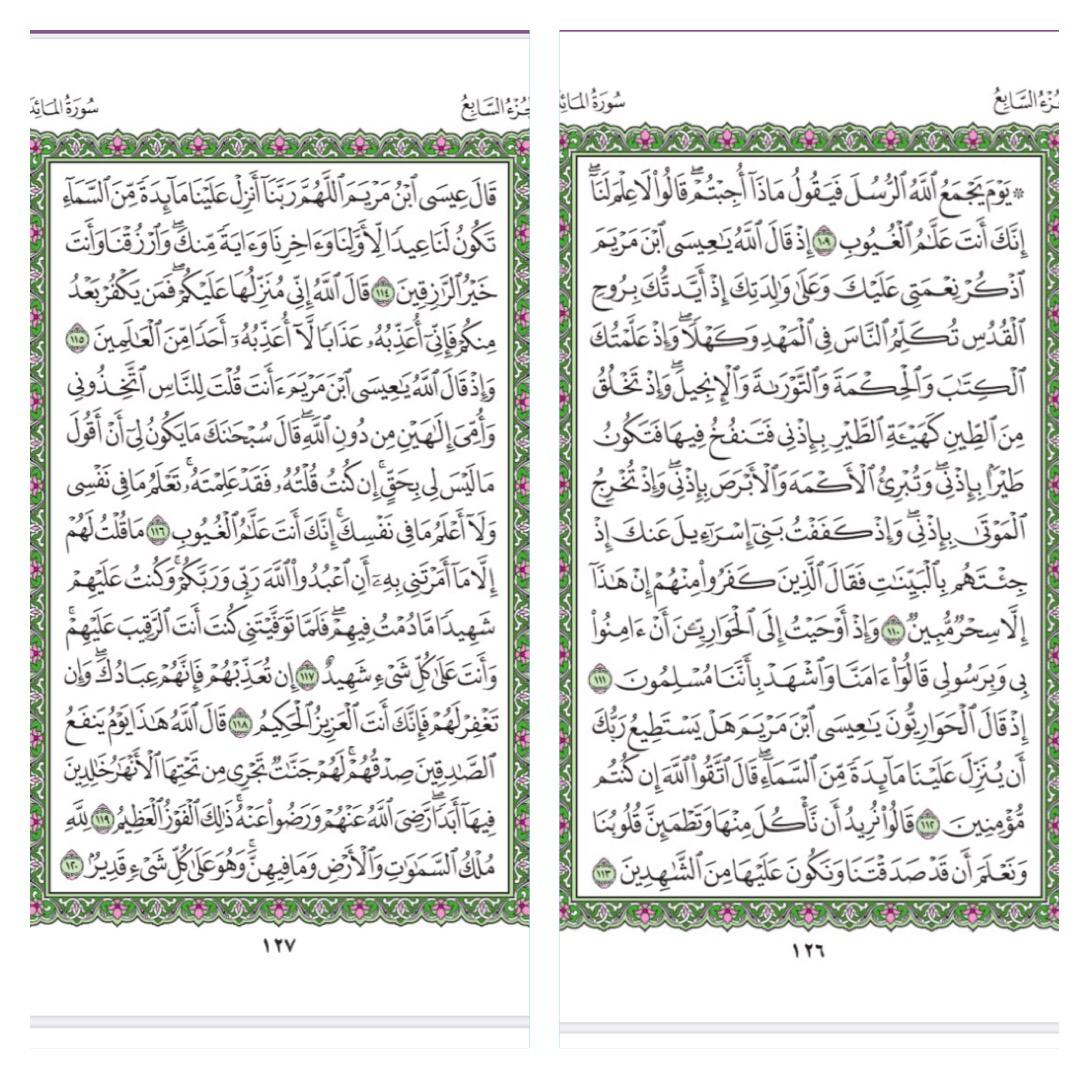 الجزء السابع
سورة المائد
۞ يَوْمَ يَجْمَعُ ٱللَّهُ ٱلرُّسُلَ فَيَقُولُ مَاذَآ أُجِبْتُمْۖ قَالُوا۟ لَا عِلْمَ لَنَآۖ
إِنَّكَ أَنتَ عَلَّـٰمُ ٱلْغُيُوبِ ١٠٩ إِذْ قَالَ ٱللَّهُ يَـٰعِيسَى ٱبْنَ مَرْيَمَ
ٱذْكُرْ نِعْمَتِى عَلَيْكَ وَعَلَىٰ وَٰلِدَتِكَ إِذْ أَيَّدتُّكَ بِرُوحِ
ٱلْقُدُسِ تُكَلِّمُ ٱلنَّاسَ فِى ٱلْمَهْدِ وَكَهْلًاۖ وَإِذْ عَلَّمْتُكَ
ٱلْكِتَـٰبَ وَٱلْحِكْمَةَ وَٱلتَّوْرَىٰةَ وَٱلْإِنجِيلَۖ وَإِذْ تَخْلُقُ
مِنَ ٱلطِّينِ كَهَيْـَٔةِ ٱلطَّيْرِ بِإِذْنِى فَتَنفُخُ فِيهَا فَتَكُونُ
طَيْرًۢا بِإِذْنِىۖ وَتُبْرِئُ ٱلْأَكْمَهَ وَٱلْأَبْرَصَ بِإِذْنِىۖ وَإِذْ تُخْرِجُ
ٱلْمَوْتَىٰ بِإِذْنِىۖ وَإِذْ كَفَفْتُ بَنِىٓ إِسْرَٰٓءِيلَ عَنكَ إِذْ
جِئْتَهُم بِٱلْبَيِّنَـٰتِ فَقَالَ ٱلَّذِينَ كَفَرُوا۟ مِنْهُمْ إِنْ هَـٰذَآ
إِلَّا سِحْرٌ مُّبِينٌ ١١٠ وَإِذْ أَوْحَيْتُ إِلَى ٱلْحَوَارِيِّـۧنَ أَنْ ءَامِنُوا۟
بِى وَبِرَسُولِى قَالُوٓا۟ ءَامَنَّا وَٱشْهَدْ بِأَنَّنَا مُسْلِمُونَ ١١١
إِذْ قَالَ ٱلْحَوَارِيُّونَ يَـٰعِيسَى ٱبْنَ مَرْيَمَ هَلْ يَسْتَطِيعُ رَبُّكَ
أَن يُنَزِّلَ عَلَيْنَا مَآئِدَةً مِّنَ ٱلسَّمَآءِۖ قَالَ ٱتَّقُوا۟ ٱللَّهَ إِن كُنتُم
مُّؤْمِنِينَ ١١٢ قَالُوا۟ نُرِيدُ أَن نَّأْكُلَ مِنْهَا وَتَطْمَئِنَّ قُلُوبُنَا
وَنَعْلَمَ أَن قَدْ صَدَقْتَنَا وَنَكُونَ عَلَيْهَا مِنَ ٱلشَّـٰهِدِينَ ١١٣
١٢٦
الجزء السابع
سورة المائد
قَالَ عِيسَى ٱبْنُ مَرْيَمَ ٱللَّهُمَّ رَبَّنَآ أَنزِلْ عَلَيْنَا مَآئِدَةً مِّنَ ٱلسَّمَآءِ
تَكُونُ لَنَا عِيدًا لِّأَوَّلِنَا وَءَاخِرِنَا وَءَايَةً مِّنكَۖ وَٱرْزُقْنَا وَأَنتَ
خَيْرُ ٱلرَّٰزِقِينَ ١١٤ قَالَ ٱللَّهُ إِنِّى مُنَزِّلُهَا عَلَيْكُمْۖ فَمَن يَكْفُرْ بَعْدُ
مِنكُمْ فَإِنِّىٓ أُعَذِّبُهُۥ عَذَابًا لَّآ أُعَذِّبُهُۥٓ أَحَدًا مِّنَ ٱلْعَـٰلَمِينَ ١١٥
وَإِذْ قَالَ ٱللَّهُ يَـٰعِيسَى ٱبْنَ مَرْيَمَ ءَأَنتَ قُلْتَ لِلنَّاسِ ٱتَّخِذُونِى
وَأُمِّىَ إِلَـٰهَيْنِ مِن دُونِ ٱللَّهِۖ قَالَ سُبْحَـٰنَكَ مَا يَكُونُ لِىٓ أَنْ أَقُولَ
مَا لَيْسَ لِى بِحَقٍّۚ إِن كُنتُ قُلْتُهُۥ فَقَدْ عَلِمْتَهُۥۚ تَعْلَمُ مَا فِى نَفْسِى
وَلَآ أَعْلَمُ مَا فِى نَفْسِكَۚ إِنَّكَ أَنتَ عَلَّـٰمُ ٱلْغُيُوبِ ١١٦ مَا قُلْتُ لَهُمْ
إِلَّا مَآ أَمَرْتَنِى بِهِۦٓ أَنِ ٱعْبُدُوا۟ ٱللَّهَ رَبِّى وَرَبَّكُمْۚ وَكُنتُ عَلَيْهِمْ
شَهِيدًا مَّا دُمْتُ فِيهِمْۖ فَلَمَّا تَوَفَّيْتَنِى كُنتَ أَنتَ ٱلرَّقِيبَ عَلَيْهِمْۚ
وَأَنتَ عَلَىٰ كُلِّ شَىْءٍ شَهِيدٌ ١١٧ إِن تُعَذِّبْهُمْ فَإِنَّهُمْ عِبَادُكَۖ وَإِن
تَغْفِرْ لَهُمْ فَإِنَّكَ أَنتَ ٱلْعَزِيزُ ٱلْحَكِيمُ ١١٨ قَالَ ٱللَّهُ هَـٰذَا يَوْمُ يَنفَعُ
ٱلصَّـٰدِقِينَ صِدْقُهُمْۚ لَهُمْ جَنَّـٰتٌ تَجْرِى مِن تَحْتِهَا ٱلْأَنْهَـٰرُ خَـٰلِدِينَ
فِيهَآ أَبَدًاۖ رَّضِىَ ٱللَّهُ عَنْهُمْ وَرَضُوا۟ عَنْهُۚ ذَٰلِكَ ٱلْفَوْزُ ٱلْعَظِيمُ ١١٩ لِلَّهِ
مُلْكُ ٱلسَّمَـٰوَٰتِ وَٱلْأَرْضِ وَمَا فِيهِنَّۚ وَهُوَ عَلَىٰ كُلِّ شَىْءٍ قَدِيرٌۢ ١٢٠
١٢٧